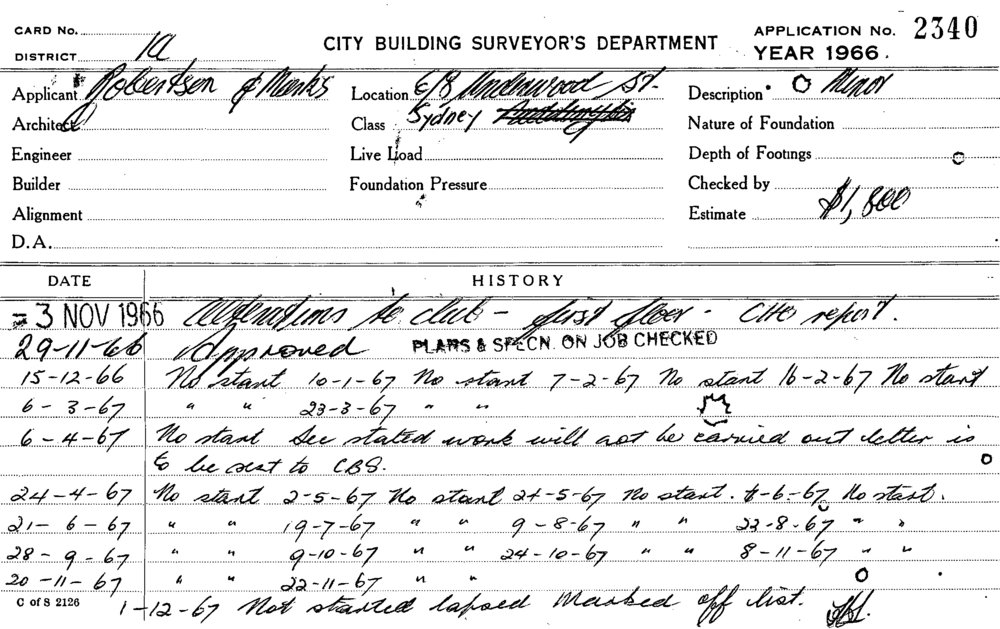 CARD No.
DISTRICT 1a
CITY BUILDING SURVEYOR'S DEPARTMENT
APPLICATION No. 2340
YEAR 1966.
Applicant Robertson & Marks Location 6/8 Underwood St. Description Minor
Architect Class Sydney Nature of Foundation
Engineer Live Load Depth of Footings
Builder Foundation Pressure Checked by
Alignment Estimate $1,800
D.A.
DATE HISTORY
= 3 NOV 1966 Alterations to club - first floor - CHO report.
29-11-66 Approved PLANS & SPECN. ON JOB CHECKED
15-12-66 No start 10-1-67 No start 7-2-67 No start 16-2-67 No start
6-3-67 " " 23-3-67 " "
6-4-67 No start Sec stated work will not be carried out letter is
to be sent to CBS.
24-4-67 No start 2-5-67 No start 24-5-67 No start. 6-67 No start.
21-6-67 " " 19-7-67 " " 9-8-67 " " 23-8-67 " "
28-9-67 " " 9-10-67 " " 24-10-67 " " 8-11-67 " "
20-11-67 " " 22-11-67 " "
C of S 2126
1-12-67 Not started lapsed Marked off list.